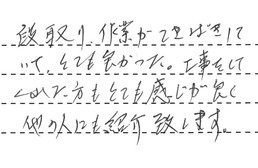 段取り、作業がてきぱきして
いて、とても良かった。工事をして
くれた方もとても感じが良く
他の人にも紹介致します。